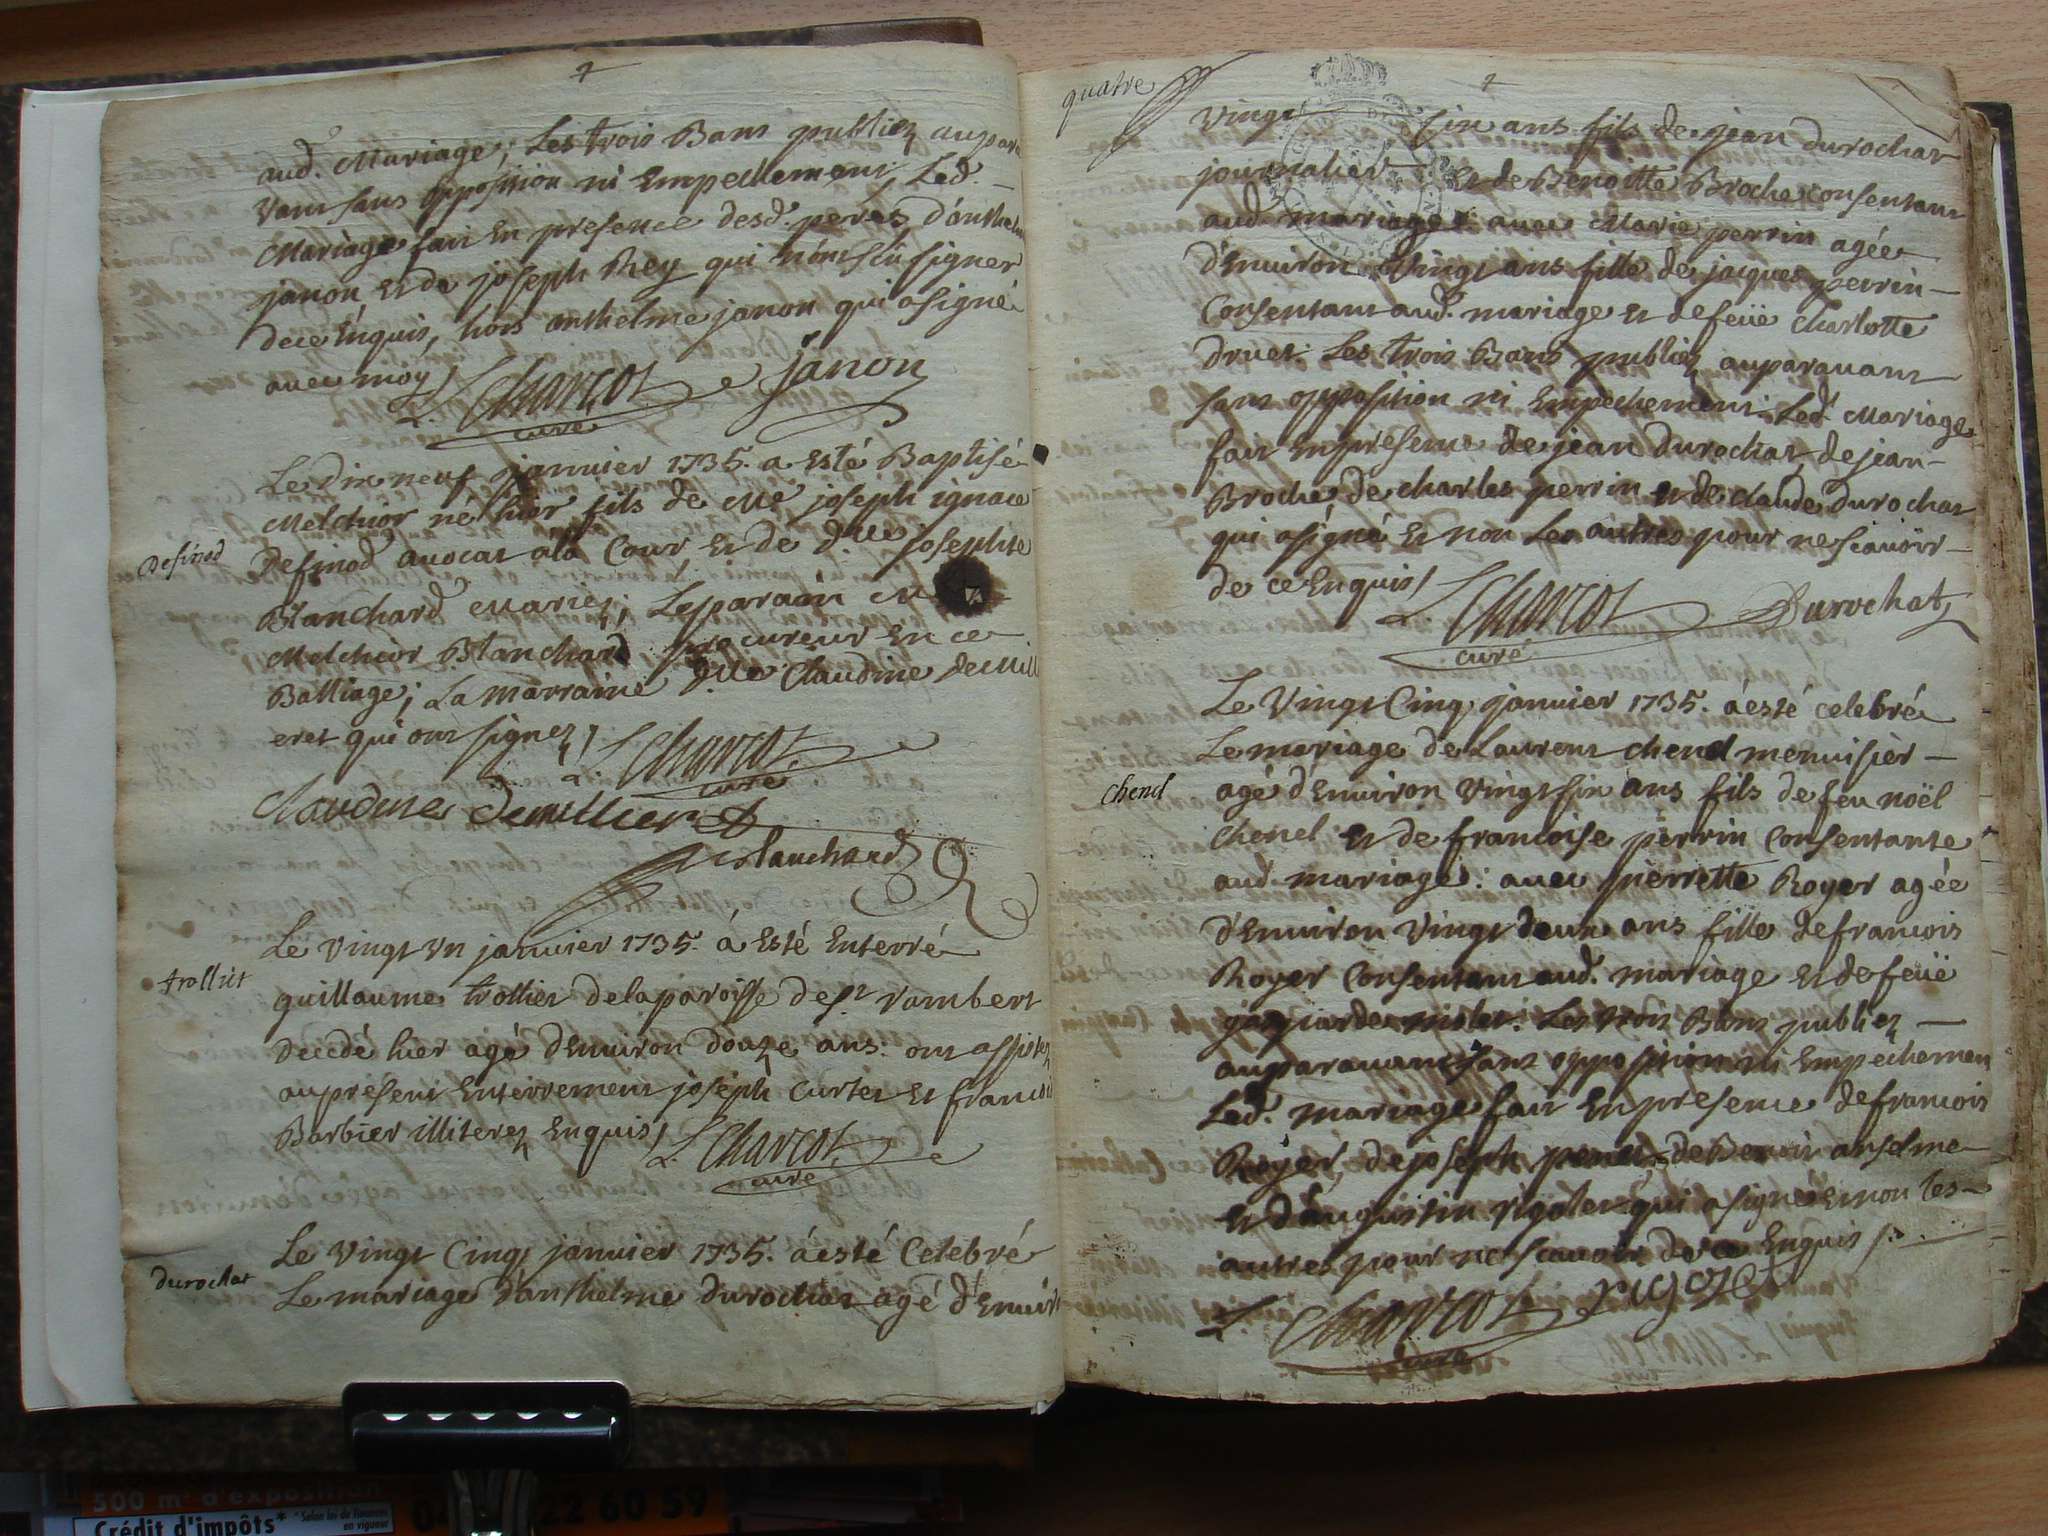 aud. Mariage; Les trois Bans publiez aupara
vant sans opposition ni Empechement, Led.
Mariage fait En presence desd. peres, d'anthelme
janon, et de joseph Rey qui n'ont sçû signer
dece Enquis, hors anthelme janon qui a signé
avec moy / L. Charcot janon
curé
Le dix neuf janvier 1735. a Esté Baptisé
Melchior né hier fils de Me joseph ignace
Definod
Definod avocat a la Cour et de dlle josephte
Blanchard Mariez; Le parain
Melchior Blanchard procureur en ce
Balliage; La marraine dlle Claudine demilli
eret qui ont signez / L. Charcot
curé
Claudine Demillieret
Blanchard
Le vingt un janvier 1735. á Esté Enterré
trolliet
guillaume trollier de la paroisse de st rambert
decedé hier agé d'Environ douze ans. ont assistez
au present Enterrement joseph Curtet et francois
Barbier illiterez Enquis / L. Charcot
curé
Le vingt Cinq janvier 1735. á esté Celebré
durochat
Le mariage d'anthelme durochat agé d'Enviro
quatre
vingt six ans fils de jean durochat
journalier et de Benoitte Broche consentant
aud. mariage: avec Marie perrin agée
d'Environ Vingt ans fille de jacques perrin
Consentant aud. mariage et defeüe Charlotte
druet. Les trois Bans publiez auparavant
sans opposition ni Empechement. Led. Mariage
fait En presence de jean durochat, de jean
Broche, de charles perrin et de claude durochat
qui a signé et non Les autres pour ne scavoir
de ce Enquis / L. Charcot Durochat
curé
Le Vingt Cinq janvier 1735. á esté celebré
Le mariage de Laurent chenel menuisier
chenel
agé d'Environ Vingt six ans fils de feu noël
chenel et de francoise perrin Consentante
aud. mariage: avec pierrette Royer agée
d'Environ Vingt deux ans fille de francois
Royer Consentant aud. mariage et defeüe
Les trois Bans publiez
auparavant sans opposition ni Empechemen
Led. mariage fait En presence de francois
Royer, de joseph de Benoit anselme
et d'augustin rigolet qui a signé et non les
autres pour ne scavoir de ce Enquis /.
L. Charcot rigolet
curé
500 m² d'exposition
22 60 59
Crédit d'impôts*
* Selon loi de finances
en vigueur